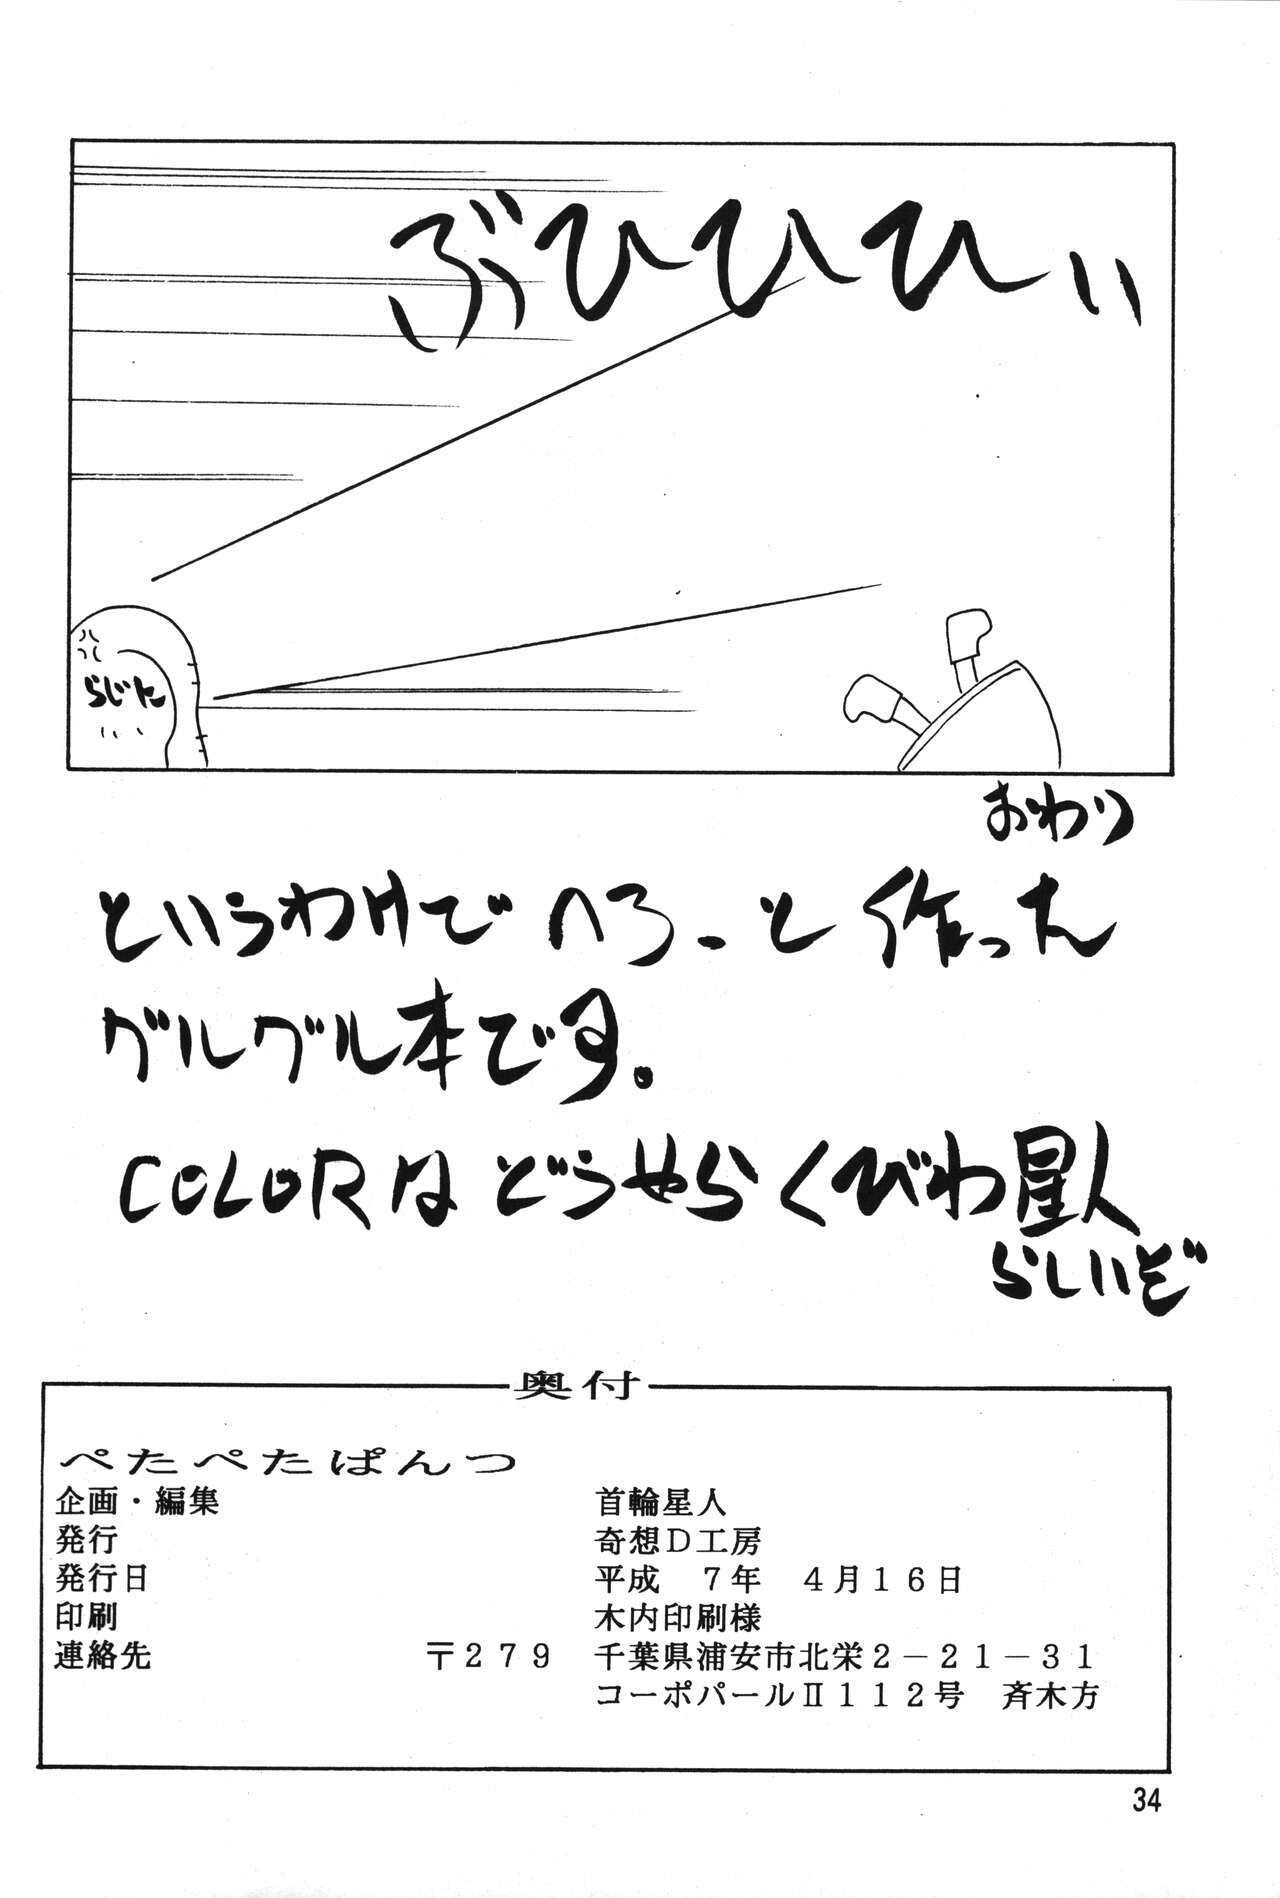 ぶひひひぃぃ
らじた
おわり
というわけでへろーと作った
グルグル本です。
COLORはどうやらくびわ星人
らしいぞ
奥付
ぺたぺたぱんつ
企画・編集　首輪星人
発行　奇想D工房
発行日　平成　7年　4月16日
印刷　木内印刷様
連絡先　〒279　千葉県浦安市北栄2-21-31
コーポパールⅡ112号　斉木方
34